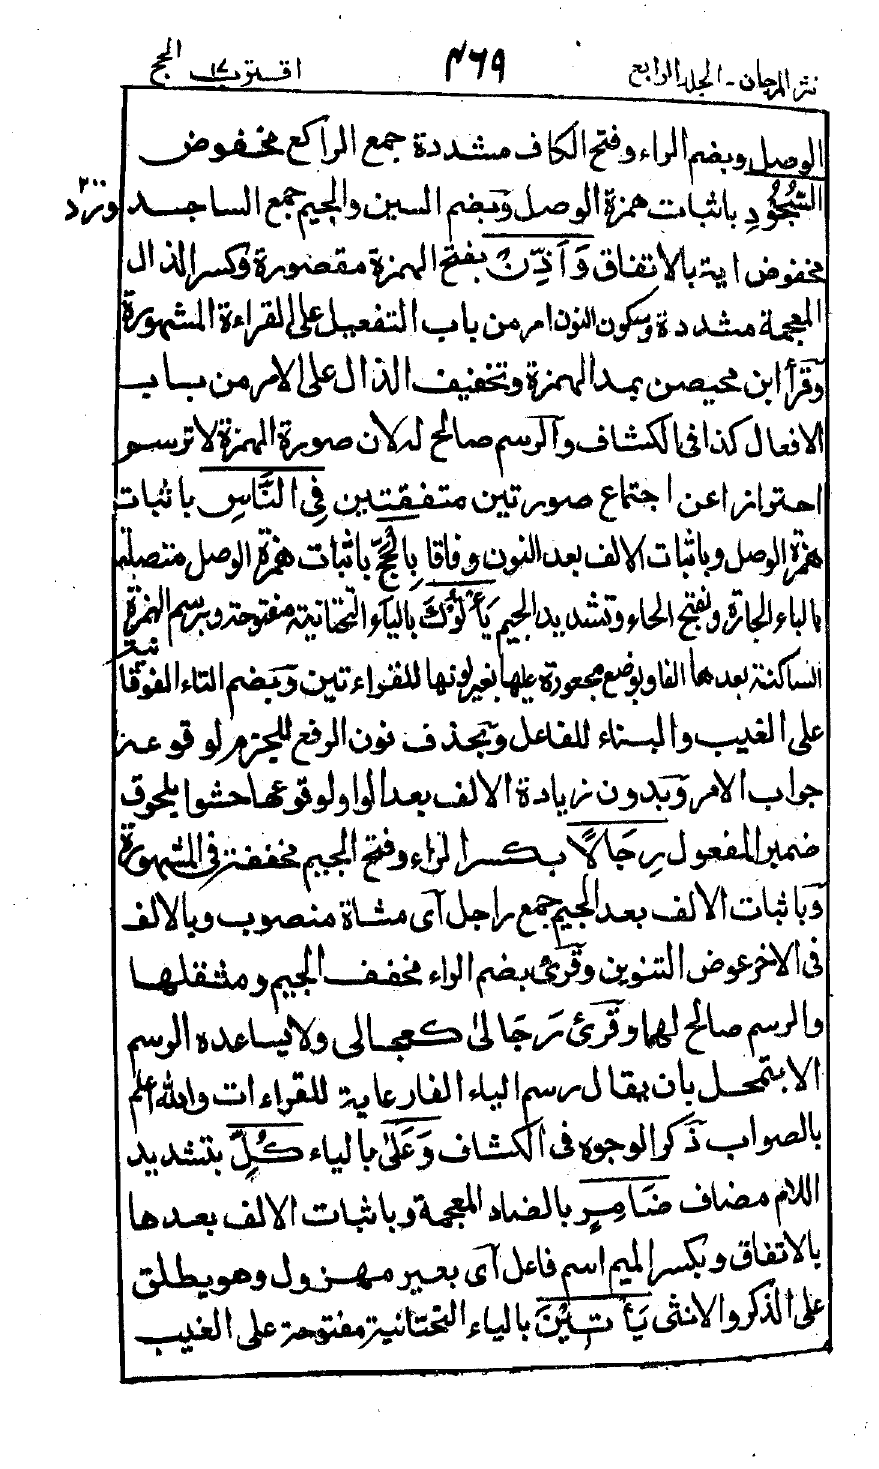 نثر المرجان - الجلد الرابع ٤٦٩ اقترب ١٧ الحج
الوصل وبضم الراء وفتح الكاف مشددة جمع الراكع مخفوض
السُّجُودِ باثبات همزة الوصل وبضم السين والجيم جمع الساجد وزد
مخفوض اية بالاتفاق وَاَذِّنْ بفتح الهمزة مقصورة وكسر الذال
المعجمة مشددة وسكون النون امر من باب التفعيل على القراءة المشهورة
وقرأ ابن محيصن بمد الهمزة وتخفيف الذال على الامر من باب
الافعال كذا فى الكشاف والرسم صالح له لان صورة الهمزة لا ترسم
احترازا عن اجتماع صورتين متفقتين فِى النَّاسِ باثبات
همزة الوصل وباثبات الالف بعد النون وفاقا بِالْحَجِّ باثبات همزة الوصل متصلة
بالباء الجارة وبفتح الحاء وتشديد الجيم يَأْتُوْكَ بالياء التحتانية مفتوحة وبرسم الهمزة
الساكنة بعدها الفا وبوضع مجعودة عليها بغير لونها للقراءتين وبضم التاء الفوقانية
على الغيب والبناء للفاعل وبحذف نون الرفع للجزم لوقوعه
جواب الامر وبدون زيادة الالف بعد الواو لوقوعها حشوا بلحوق
ضمير المفعول رِجَالًا بكسر الراء وفتح الجيم مخففة فى المشهورة
وباثبات الالف بعد الجيم جمع راجل اى مشاة منصوب وبالالف
فى الاخر عوض التنوين وقرئ بضم الراء مخفف الجيم ومثقلها
والرسم صالح لهما وقرئ رَجَالىٰ كعجالى ولا يساعده الرسم
الا بتمحل بان يقال رسم الياء الفا رعاية للقراءات والله اعلم
بالصواب ذكر الوجوه فى الكشاف وَعَلىٰ بالياء كُلِّ بتشديد
اللام مضاف ضَامِرٍ بالضاد المعجمة وباثبات الالف بعدها
بالاتفاق وبكسر الميم اسم فاعل اى بعير مهزول وهو يطلق
على الذكر والانثى يَأْتِيْنَ بالياء التحتانية مفتوحة على الغيب